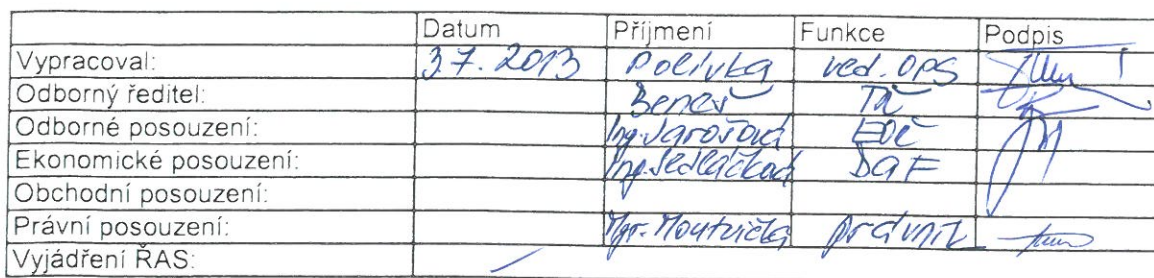 Datum Příjmení Funkce Podpis
Vypracoval: 3.7. 2013 Polívka ved. OPS
Odborný ředitel: Beneš TŘ
Odborné posouzení: Ing. Jarošová
Ekonomické posouzení: Ing. Sedláčková
Obchodní posouzení:
Právní posouzení: Mgr. Moutvička právník
Vyjádření ŘAS: